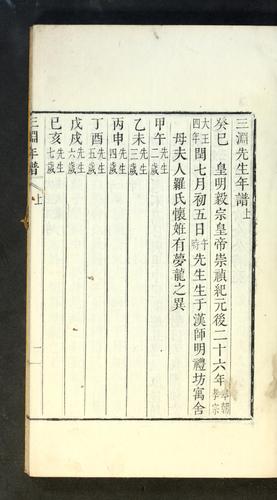 三淵先生年譜上
癸巳 皇明毅宗皇帝崇禎紀元後二十六年本朝孝宗
大王四年閏七月初五日午時先生生于漢師明禮坊寓舍
母夫人羅氏懷姙有夢龍之異
甲午先生二歲
乙未先生三歲
丙申先生四歲
丁酉先生五歲
戊戌先生六歲
己亥先生七歲
三淵年譜 上 一